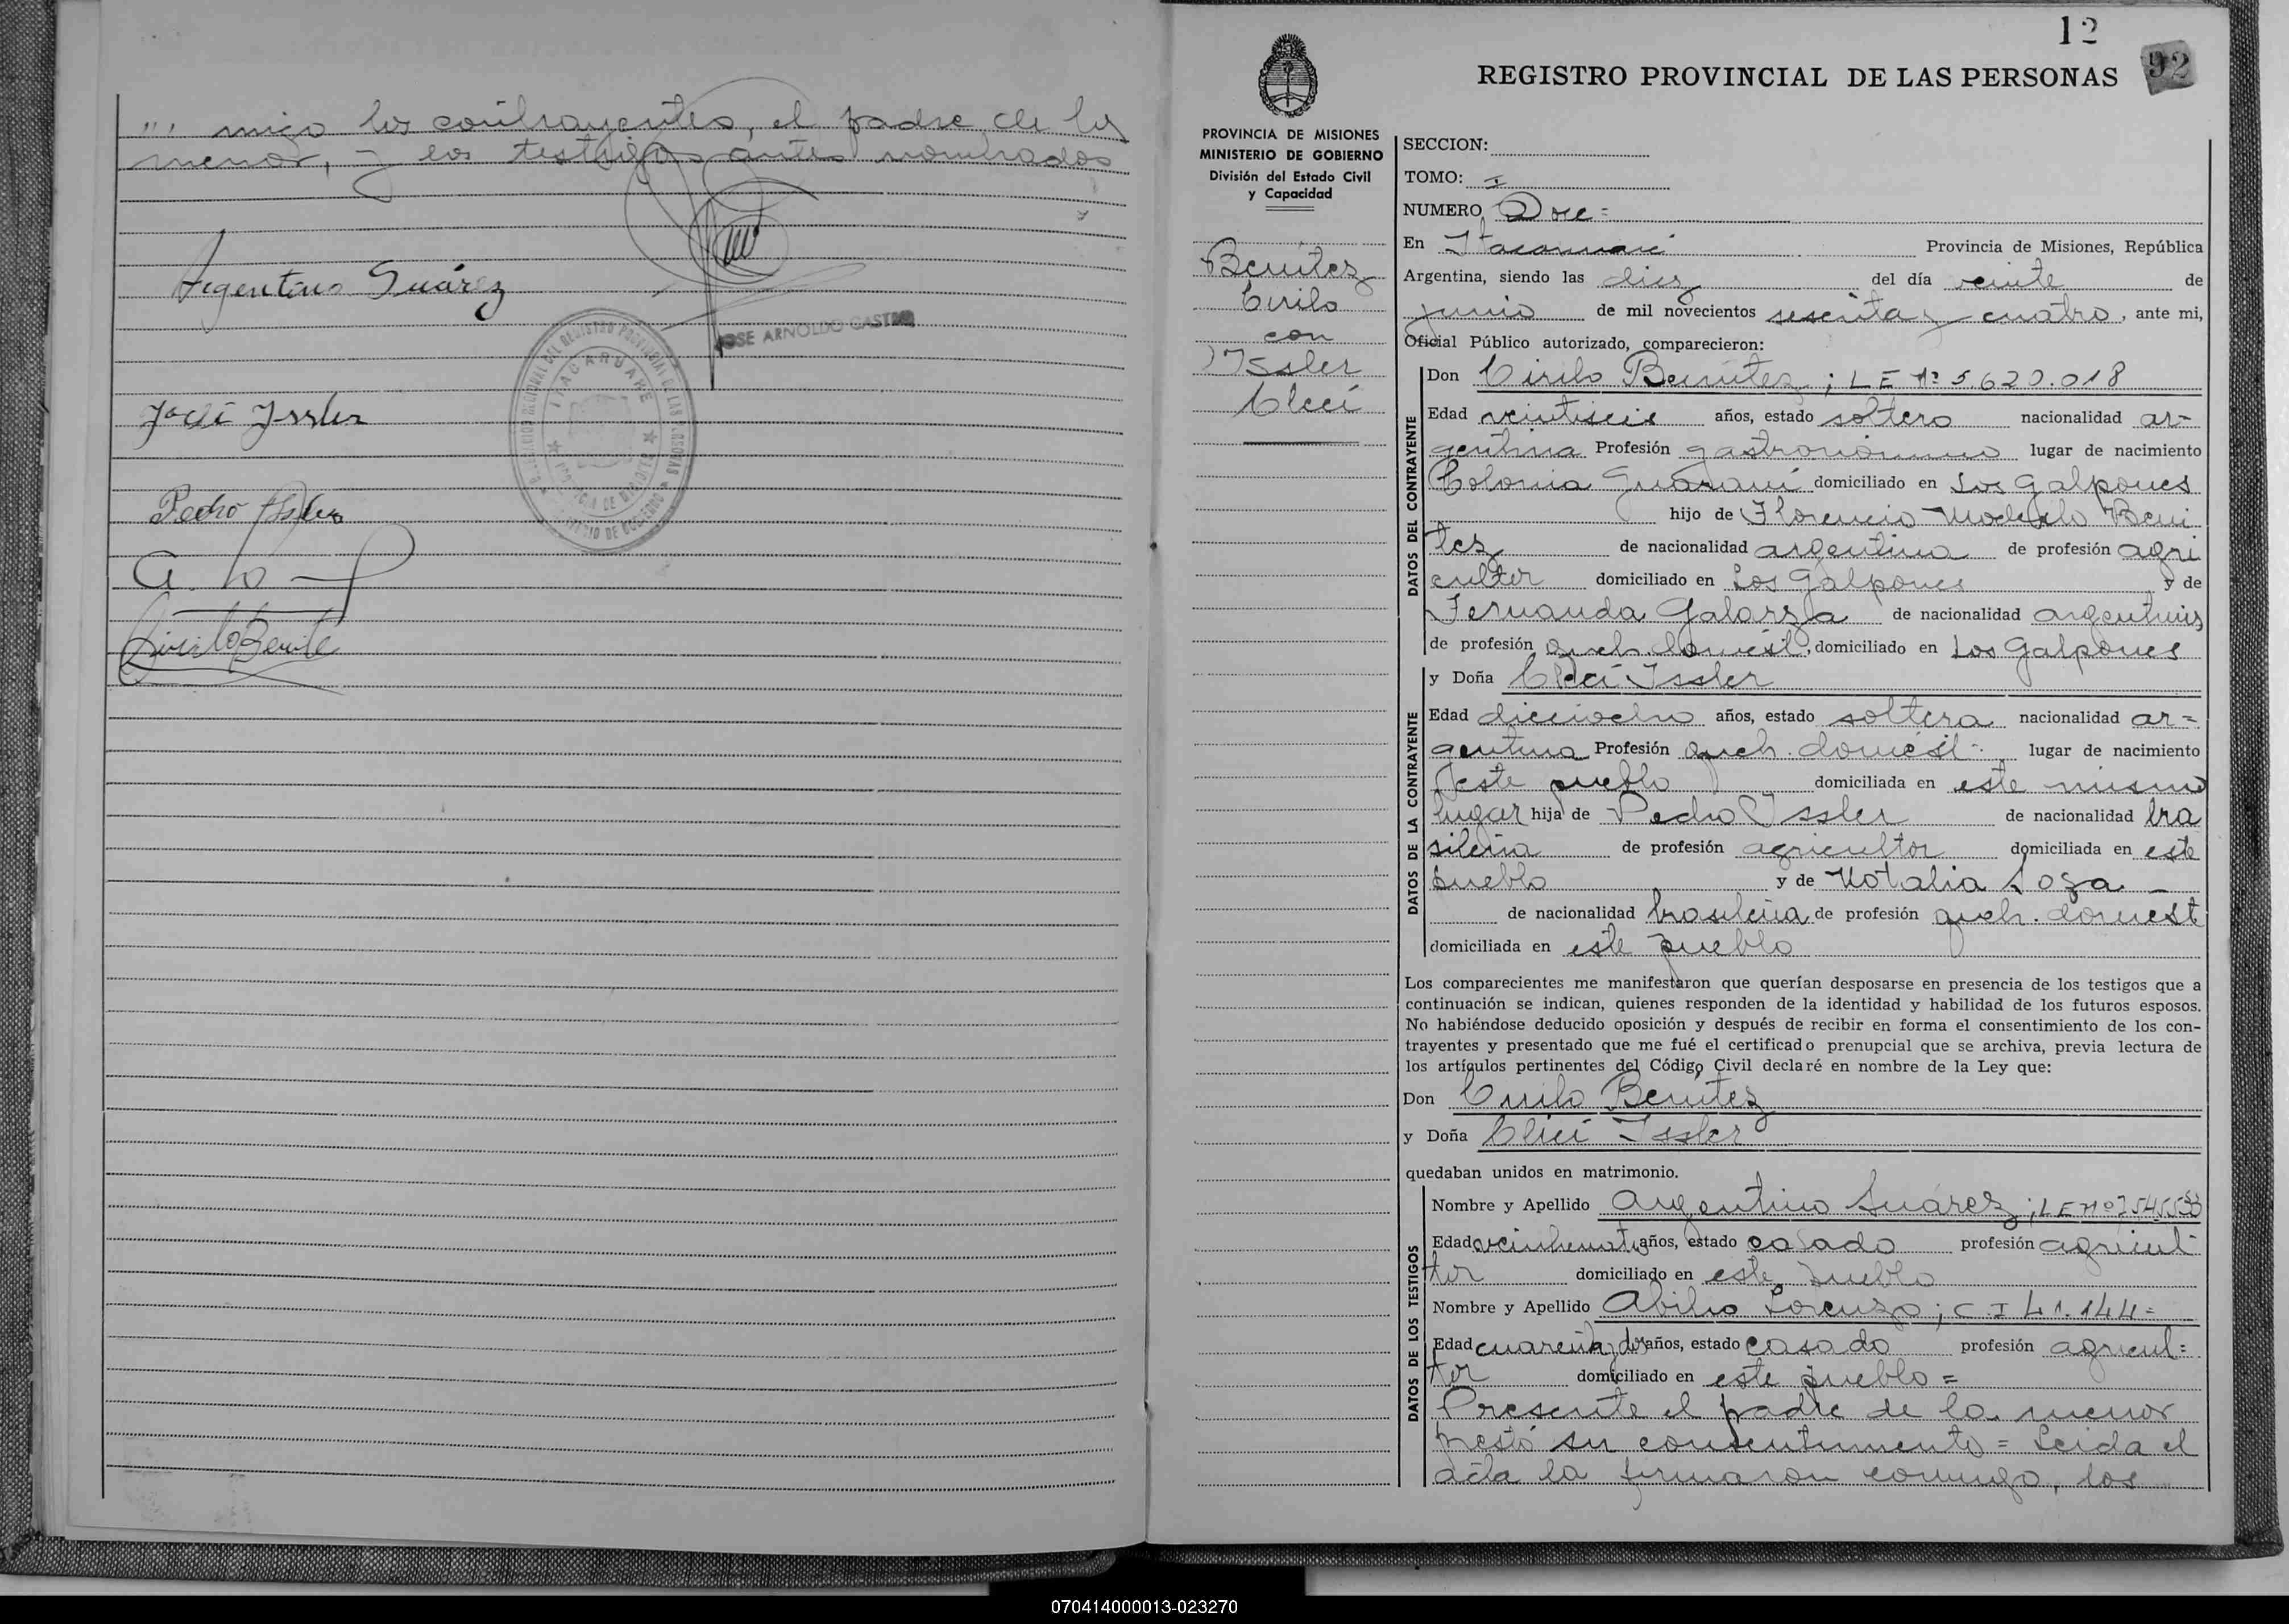 "' migo los contrayentes, el padre de los
menor, y los testigos antes nombrados
Argentino Suárez
JOSE ARNOLDO CASTRO
ITACARUARE
Issler
Pedro Issler
Cirilo Benite
12
92
REGISTRO PROVINCIAL DE LAS PERSONAS
PROVINCIA DE MISIONES
MINISTERIO DE GOBIERNO
División del Estado Civil
y Capacidad
Benitez
Cirilo
con
Issler
Cleci
SECCION:
TOMO: I
NUMERO Doce =
En Itacaruaré Provincia de Misiones, República
Argentina, siendo las diez del día veinte de
junio de mil novecientos sesenta y cuatro, ante mi,
Oficial Público autorizado, comparecieron:
DATOS DEL CONTRAYENTE
Don Cirilo Benitez; LE Nº 5.620.018
Edad veintiseis años, estado soltero nacionalidad ar-
gentina Profesión gastronómico lugar de nacimiento
Colonia Guaraní domiciliado en Los Galpones
hijo de Florencio Modesto Beni
tez de nacionalidad argentina de profesión agri
cultor domiciliado en Los Galpones y de
Fernanda Galarza de nacionalidad argentina
de profesión queh. domést, domiciliado en Los Galpones
DATOS DE LA CONTRAYENTE
y Doña Cleci Issler
Edad dieciocho años, estado soltera nacionalidad ar=
gentina Profesión queh. domést. lugar de nacimiento
este pueblo domiciliada en este mismo
lugar hija de Pedro Issler de nacionalidad bra
sileña de profesión agricultor domiciliada en este
pueblo y de Notalia Soza -
de nacionalidad brasileña de profesión queh. domest
domiciliada en este pueblo
Los comparecientes me manifestaron que querían desposarse en presencia de los testigos que a
continuación se indican, quienes responden de la identidad y habilidad de los futuros esposos.
No habiéndose deducido oposición y después de recibir en forma el consentimiento de los con-
trayentes y presentado que me fué el certificado prenupcial que se archiva, previa lectura de
los artígulos pertinentes del Código Civil declaré en nombre de la Ley que:
Don Cirilo Benitez
y Doña Cleci Issler
quedaban unidos en matrimonio.
DATOS DE LOS TESTIGOS
Nombre y Apellido Argentino Suárez; LE Nº
Edad años, estado casado profesión agricul
tor domiciliado en este pueblo
Nombre y Apellido Abilio Lorenzo; C.I 41.144=
Edad cuarenta y dos años, estado casado profesión agricul=
tor domiciliado en este pueblo =
Presente el padre de la menor
prestó su consentimiento = Leida el
acta la firmaron conmigo, los
070414000013-023270